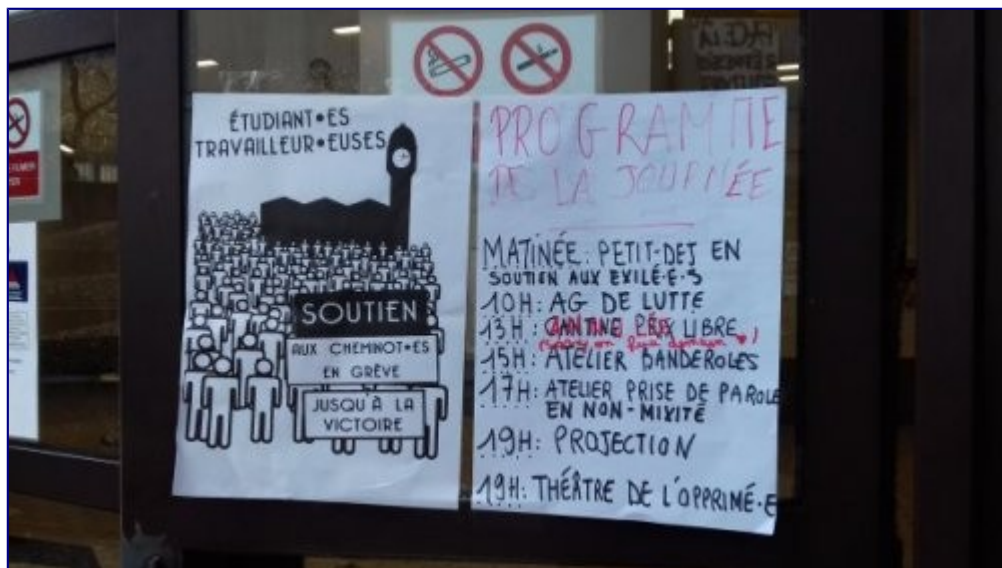 ÉTUDIANT•ES
TRAVAILLEUR•EUSES
SOUTIEN
AUX CHEMINOT•ES
EN GRÈVE
JUSQU'À LA
VICTOIRE
PROGRAMME
DE LA JOURNÉE
MATINÉE: PETIT-DEJ EN
SOUTIEN AUX EXILÉ•E•S
10H: AG DE LUTTE
13H: CANTINE PRIX LIBRE
15H: ATELIER BANDEROLES
17H: ATELIER PRISE DE PAROLE
EN NON-MIXITÉ
19H: PROJECTION
19H: THÉÂTRE DE L'OPPRIMÉ•E